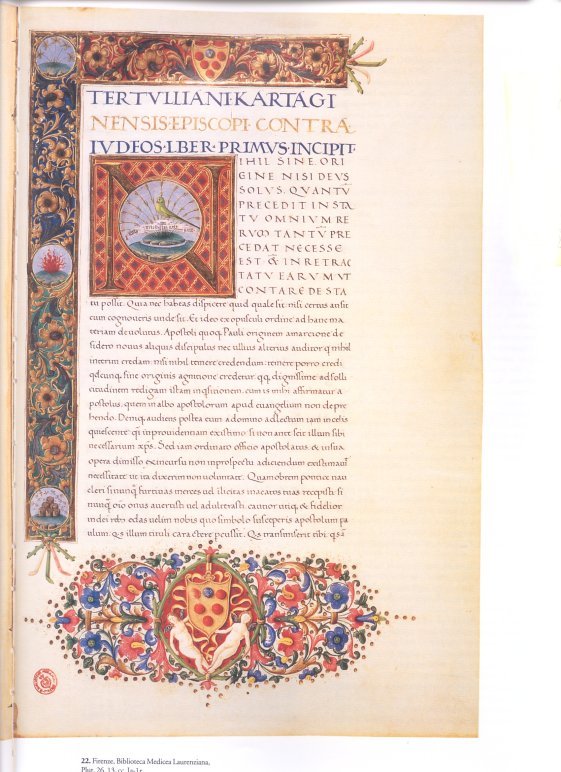 TERTVLLIANI·KARTAGI
NENSIS·EPISCOPI·CONTRA·
IVDEOS·LBER·PRIMVS·INCIPIT·
IHIL SINE ORI
GINE NISI DEVS
SOLVS. QVANTŪ
PRECEDIT IN STA
TV OMNIVM RE
RVM TANTV̄ PRE
CEDAT NECESSE
EST & IN RETRAC
TATV EARVM VT
CONTARE DE STA
tu possit. Quia nec habeas dispicere quid quale sit nisi certus an sit
cum cognoveris unde sit. Et ideo ex opusculi ordine ad hanc ma
teriam devolutus. Apostoli quoq; Pauli originem a marcione de
sidero novus aliquis discipulus nec ullius alterius auditor q nihil
interim credam. nisi nihil temere credendum: temere porro credi
qdcunq; sine originis agnitione creditur
citudinem redigam istam inqsitionem. cum is mihi affirmatur a
postolus. quem in albo apostolorum apud evangelium non depre
hendo. Deniq; audiens postea eum a domno adlectum iam in celis
quiescente qsi inprovidentiam existimo. si non ante scit illum sibi
necessarium xps. Sed iam ordinato officio apostolatus. & in sua
opera dimisso ex incursu non in prospectu adiciendum existimavit
necessitate ut ita dixerim non voluntate. Quamobrem pontice nau
cleri si nunq furtivas merces vel ilicitas in acatos tuas recepisti. si
nunq oio onus avertisti vel adulterasti. cautior utiq; & fidelior
in dei edas velim nobis quo simbolo susceperis apostolum pa
ulum. q;s illum tituli caractere pcussit. Qs transmiserit tibi. qs
22. Firenze, Biblioteca Medicea Laurenziana,
Plut. 26. 13, cc. 1r